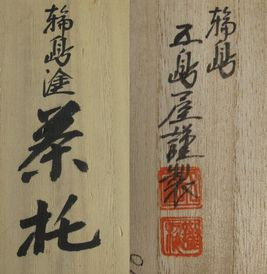 輪島塗
茶托
輪島
五島屋謹製